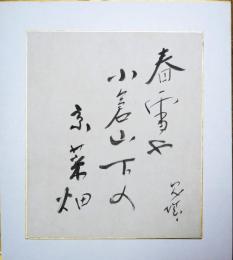 春雪や
小倉山下の
京菜畑